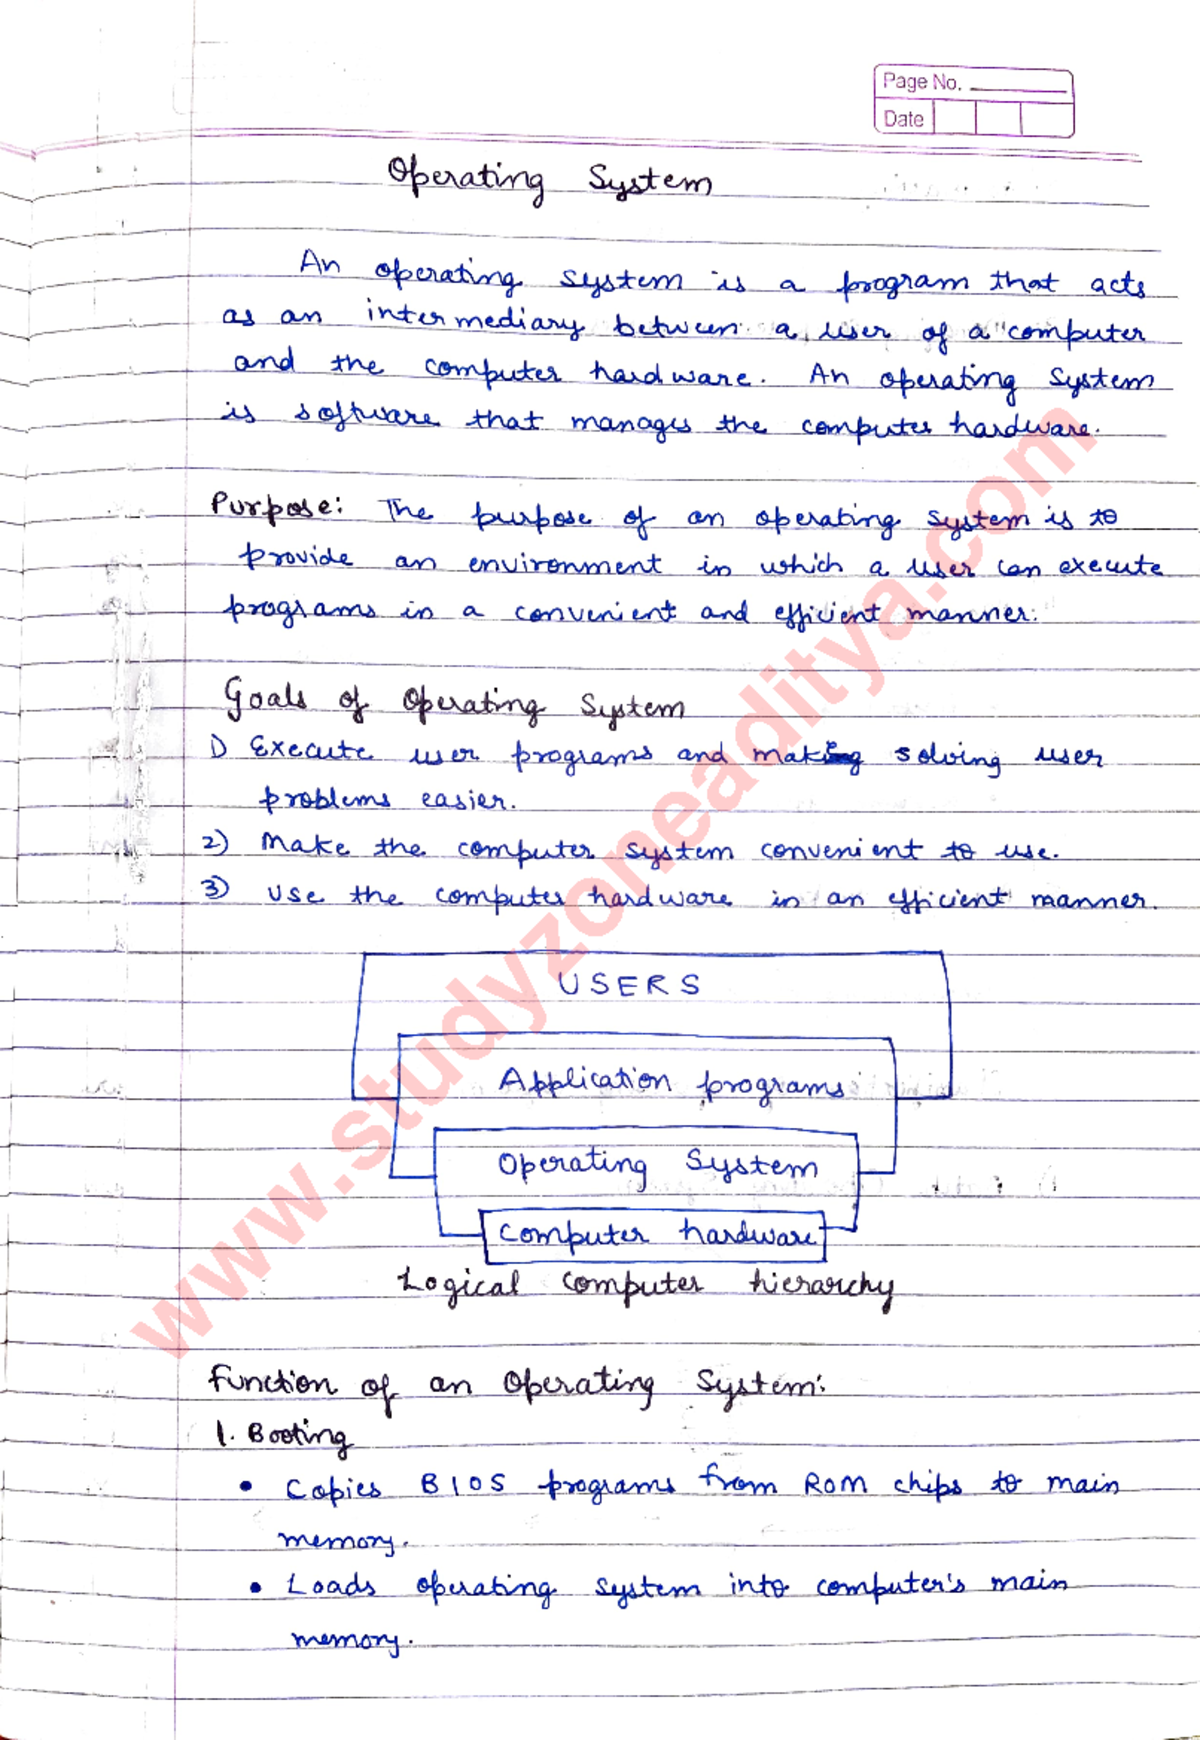 Page No.
Date
Operating System
An operating system is a program that acts
as an intermediary between a user of a computer
and the computer hardware. An operating System
is software that manages the computer hardware.
Purpose: The purpose of an operating system is to
provide an environment in which a user can execute
programs in a convenient and efficient manner.
Goals of Operating System
1) Execute user programs and making solving user
problems easier.
2) Make the computer system convenient to use.
3) Use the computer hardware in an efficient manner.
USERS
Application programs
Operating System
Computer hardware
Logical computer hierarchy
Function of an Operating System:
1. Booting
• Copies BIOS programs from ROM chips to main
memory.
• Loads operating system into computer's main
memory.
www.studyzoneaditya.com